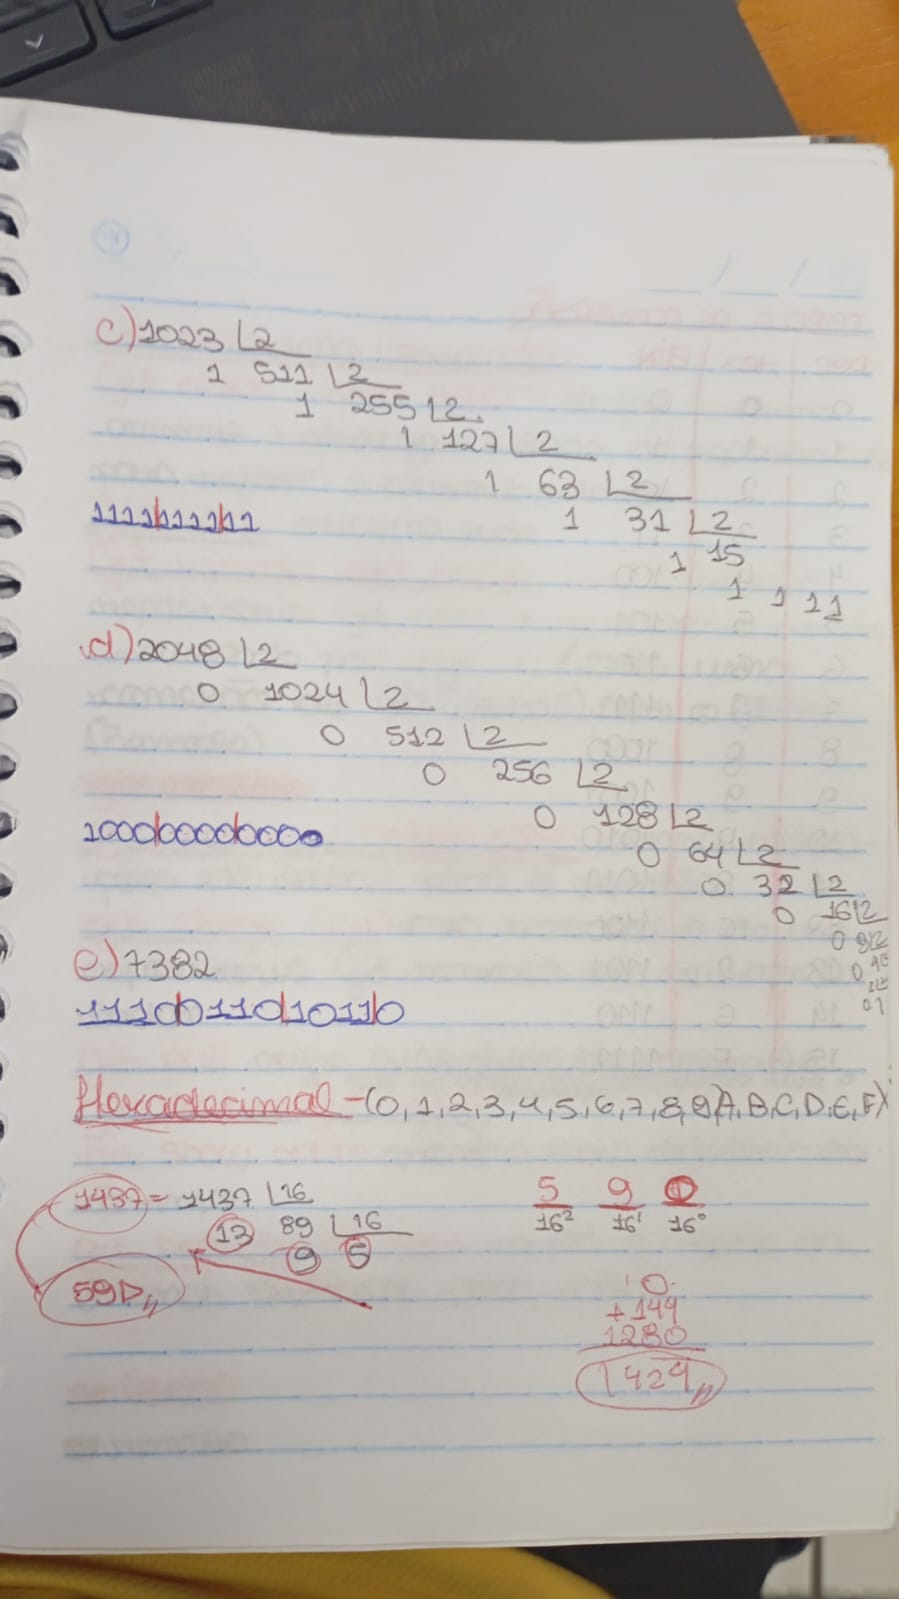 c) 1023 2
1 511 2
1 255 2
1 127 2
1 63 2
1111111111
1 31 2
1 15
1 1 1 1
d) 2048 2
0 1024 2
0 512 2
0 256 2
0 128 2
100000000000
0 64 2
0 32 2
0 16 2
0 8 2
0 4
0 1
e) 7382
1110011010110
Hexadecimal - (0,1,2,3,4,5,6,7,8,9,A,B,C,D,E,F)
1437 = 1437 16
13 89 16
9 5
59D
5 9 0
16² 16¹ 16⁰
0
+144
1280
1424